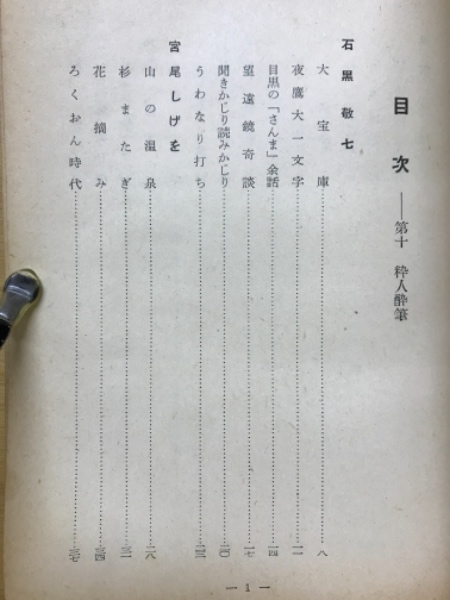 目次――第十 粋人酔筆
石黒敬七
大宝庫……八
夜鷹大一文字……一一
目黒の「さんま」余話……一四
望遠鏡奇談……一七
聞きかじり読みかじり……二〇
うわなり打ち……二三
宮尾しげを
山の温泉……二八
杉またぎ……三一
花摘み……三四
ろくおん時代……三七
— 1 —